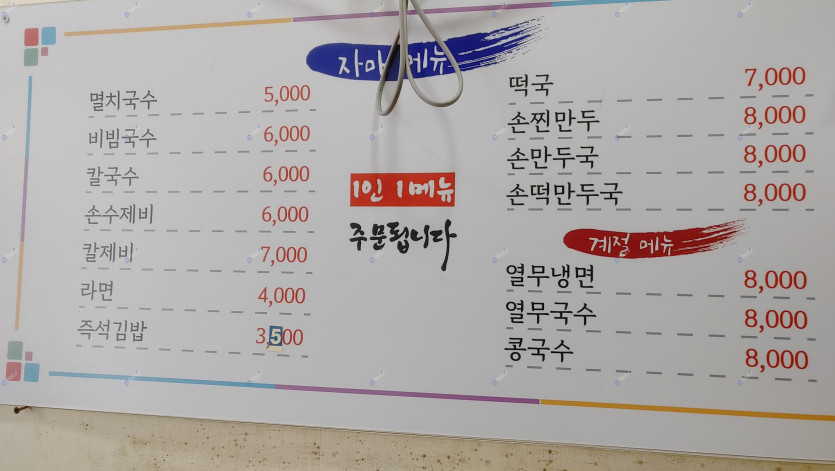 자마 메뉴
멸치국수 5,000
비빔국수 6,000
칼국수 6,000
손수제비 6,000
칼제비 7,000
라면 4,000
즉석김밥 3,500
1인 1메뉴
주문됩니다
떡국 7,000
손찐만두 8,000
손만두국 8,000
손떡만두국 8,000
계절 메뉴
열무냉면 8,000
열무국수 8,000
콩국수 8,000